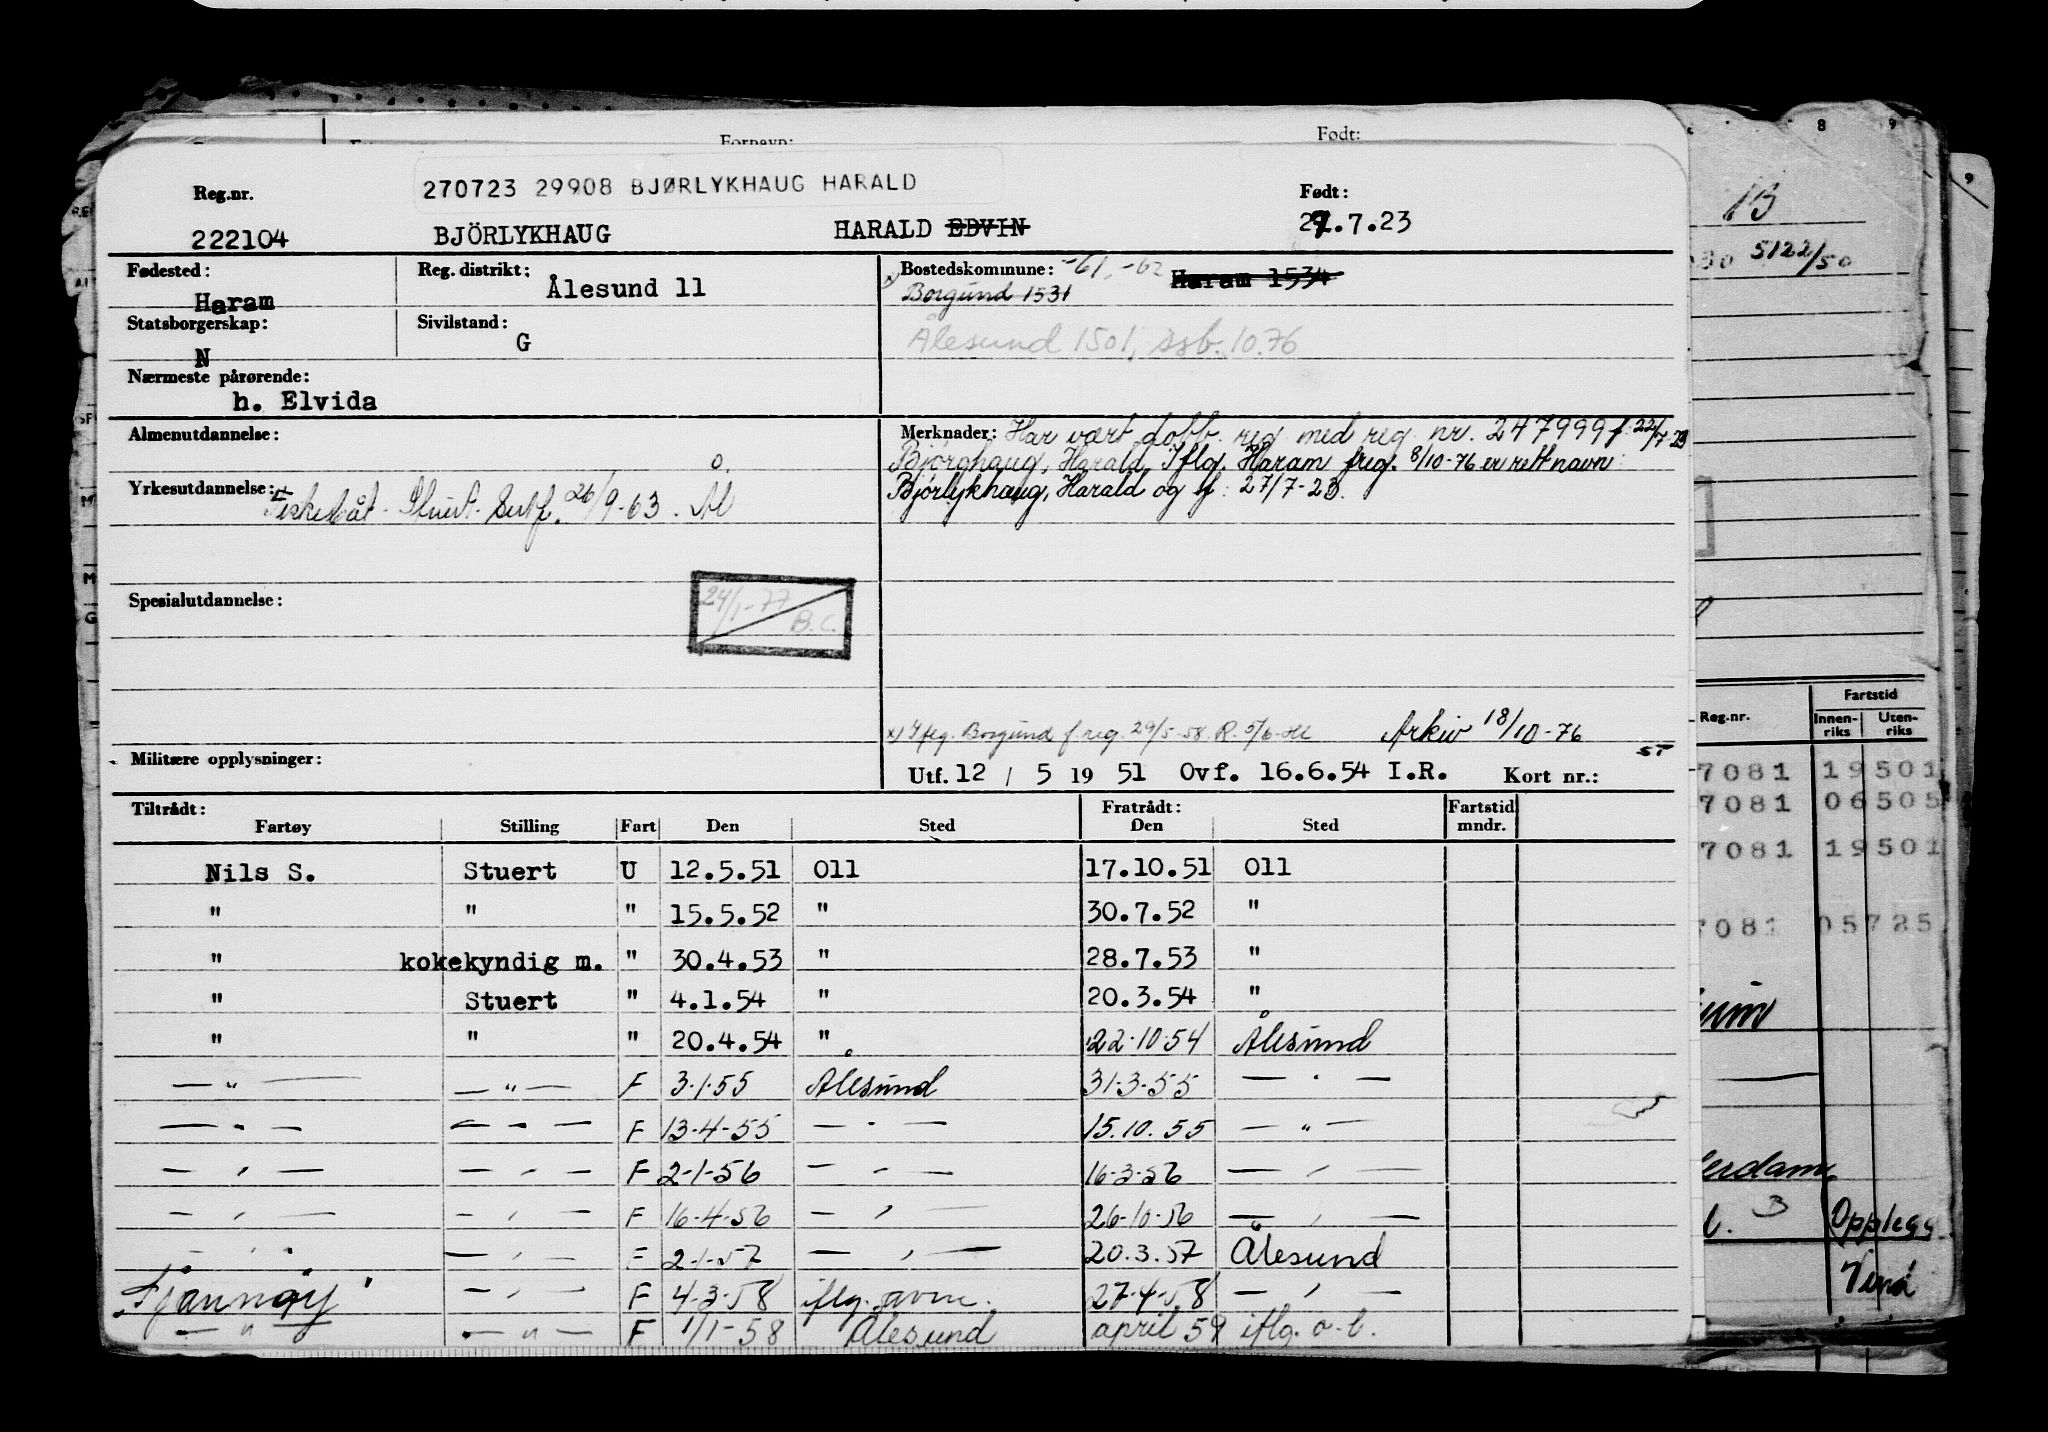 Fornavn: Født:
Reg.nr. 270723 29908 BJØRLYKHAUG HARALD Født:
222104 BJÖRLYKHAUG HARALD EDVIN 27.7.23
Fødested: Reg. distrikt: Bostedskommune: -61, -62 Haram 1534
Haram Ålesund 11 x) Borgund 1531
Statsborgerskap: Sivilstand: Ålesund 1501, ssb. 10.76
N G
Nærmeste pårørende:
h. Elvida
Almenutdannelse: Merknader: Har vært dobb. reg. med reg. nr. 247999 f. 22/7-23
Bjørghaug, Harald, Iflg. Haram freg. 8/10-76 er rett navn
Yrkesutdannelse: Bjørlykhaug, Harald og f: 27/7-23.
Fiskebåt - Stuert. Sertf. 26/9-63. Ål
Spesialutdannelse: 24/1-77 B.C.
x) Iflg. Borgund f.reg. 29/5-58. R. 5/6- Arkiv 18/10-76
Militære opplysninger: Utf. 12 / 5 19 51 Ovf. 16.6.54 I.R. Kort nr.: ST
Tiltrådt: Fratrådt: Fartstid
Fartøy Stilling Fart Den Sted Den Sted mndr.
Nils S. Stuert U 12.5.51 011 17.10.51 011
" " " 15.5.52 " 30.7.52 "
" kokekyndig m. " 30.4.53 " 28.7.53 "
" Stuert " 4.1.54 " 20.3.54 "
" " " 20.4.54 " 22-10-54 Ålesund
— " — — " — F 3-1-55 Ålesund 31-3-55 — " —
— " — — " — F 13-4-55 — " — 15.10.55 — " —
— " — — " — F 2-1-56 — " — 16-3-56 — " —
— " — — " — F 16-4-56 — " — 26-10-56 — " —
" — " — F 2-1-57 — " — 20.3.57 Ålesund
"Fjannøy" — " — F 4-3-58 iflg. avm. 27-4-58 — " —
— " — — " — F 1/1-58 Ålesund april 59 iflg. o-l.
8 9
9
13
5122/50
Fartstid
Reg.nr. Innenriks Utenriks
7081 19501
7081 06505
7081 19501
7081 05725
3 Opplegg